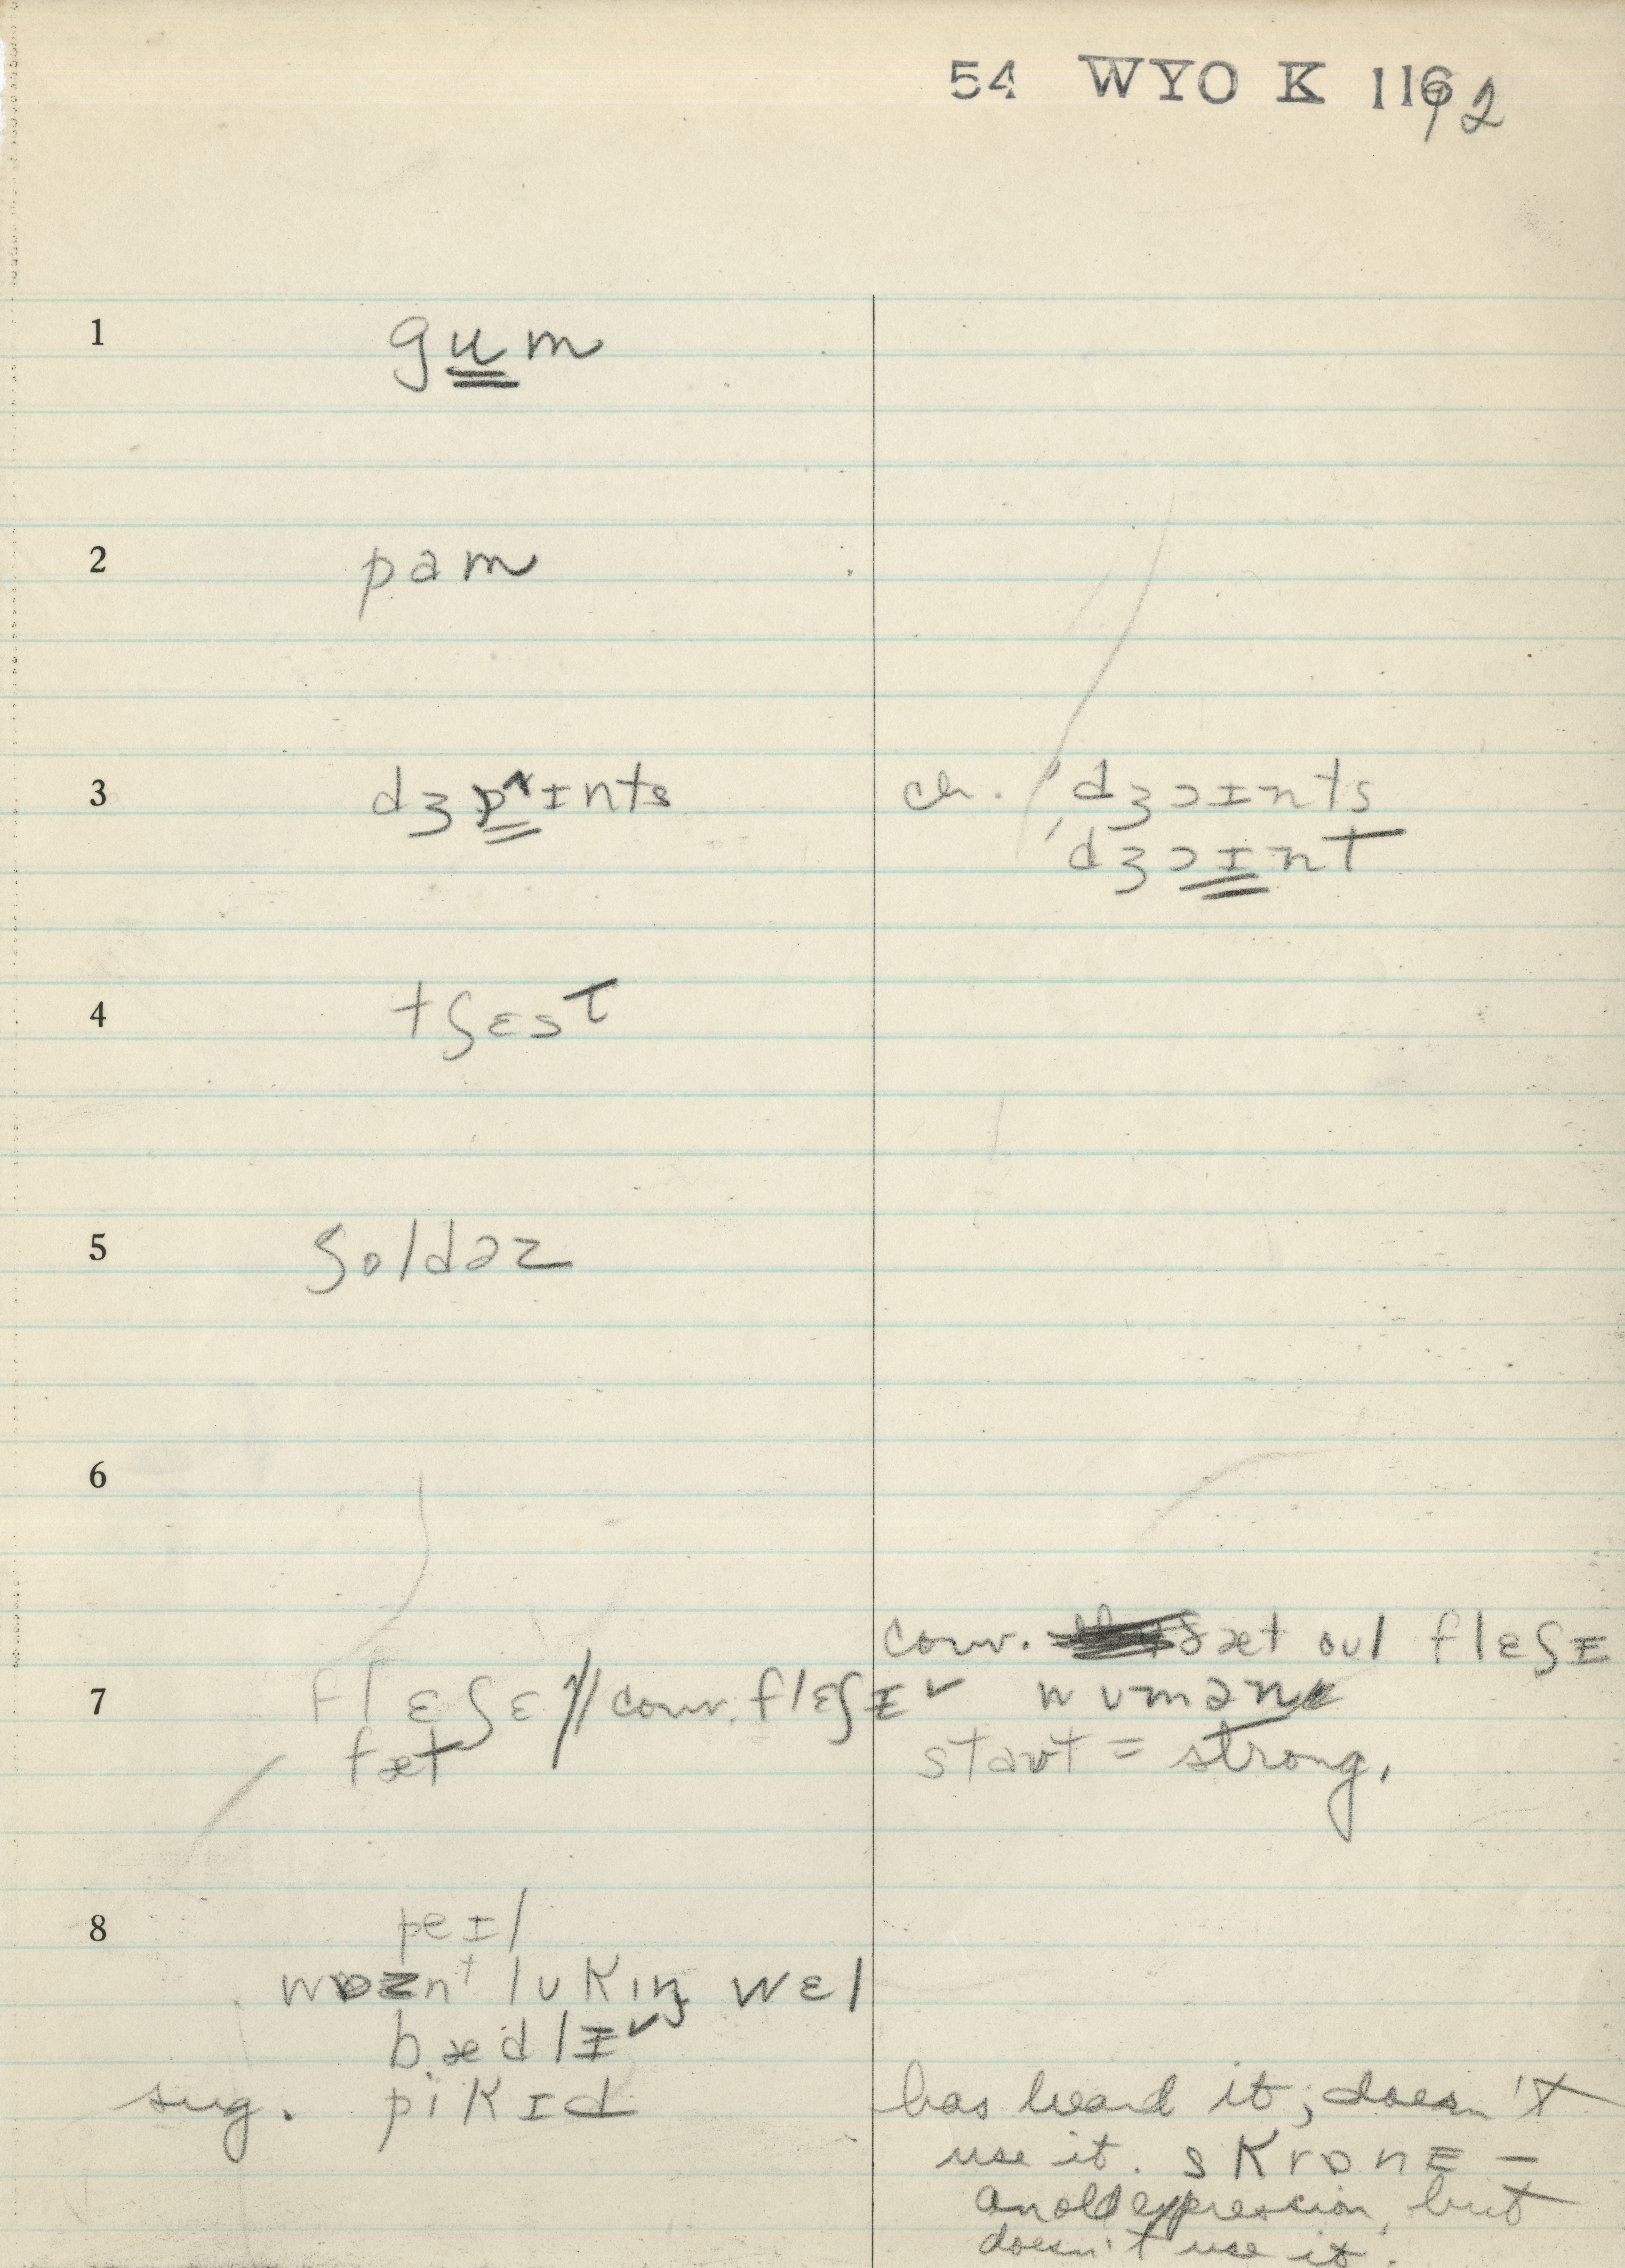 54 WYO K 116/2
1 gum
2 pam
3 dʒɒ^ɪnts
ch. 'dʒɔɪnts
'dʒɔɪnt
4 tʃɛst
5 ʃoldəz
6
conv. ðæt oul flɛʃɪ
7 flɛʃɪ // conv. flɛʃɪ ˅ wumən
fæt
start = strong.
8 peɪl
wɒznt lukɪŋ wɛl
bædlɪ ˅
sug. pikɪd
has heard it; doesn't
use it. skrɒnɪ –
an old expression, but
doesn't use it.